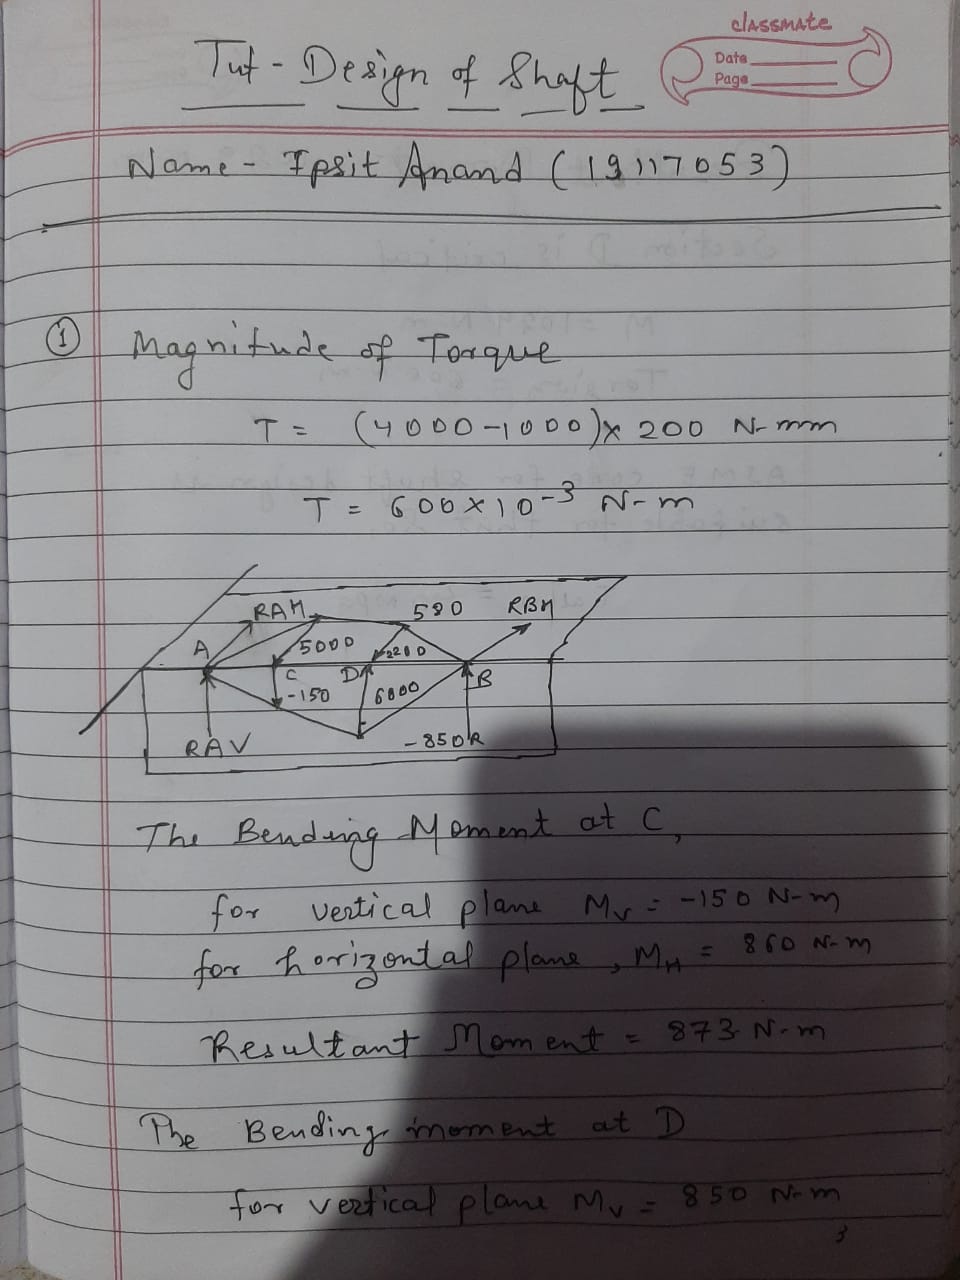 classmate
Date
Page
Tut - Design of Shaft
Name - Ipsit Anand (19117053)
① Magnitude of Torque
T = (4000-1000)x 200 N-mm
T = 600x10-3 N-m
RAH 580 RBH
A 5000 2200
C D B
-150 6000
RAV -850R
The Bending Moment at C,
for vertical plane Mv = -150 N-m
for horizontal plane, MH = 860 N-m
Resultant Moment = 873 N-m
The Bending moment at D
for vertical plane Mv = 850 N-m